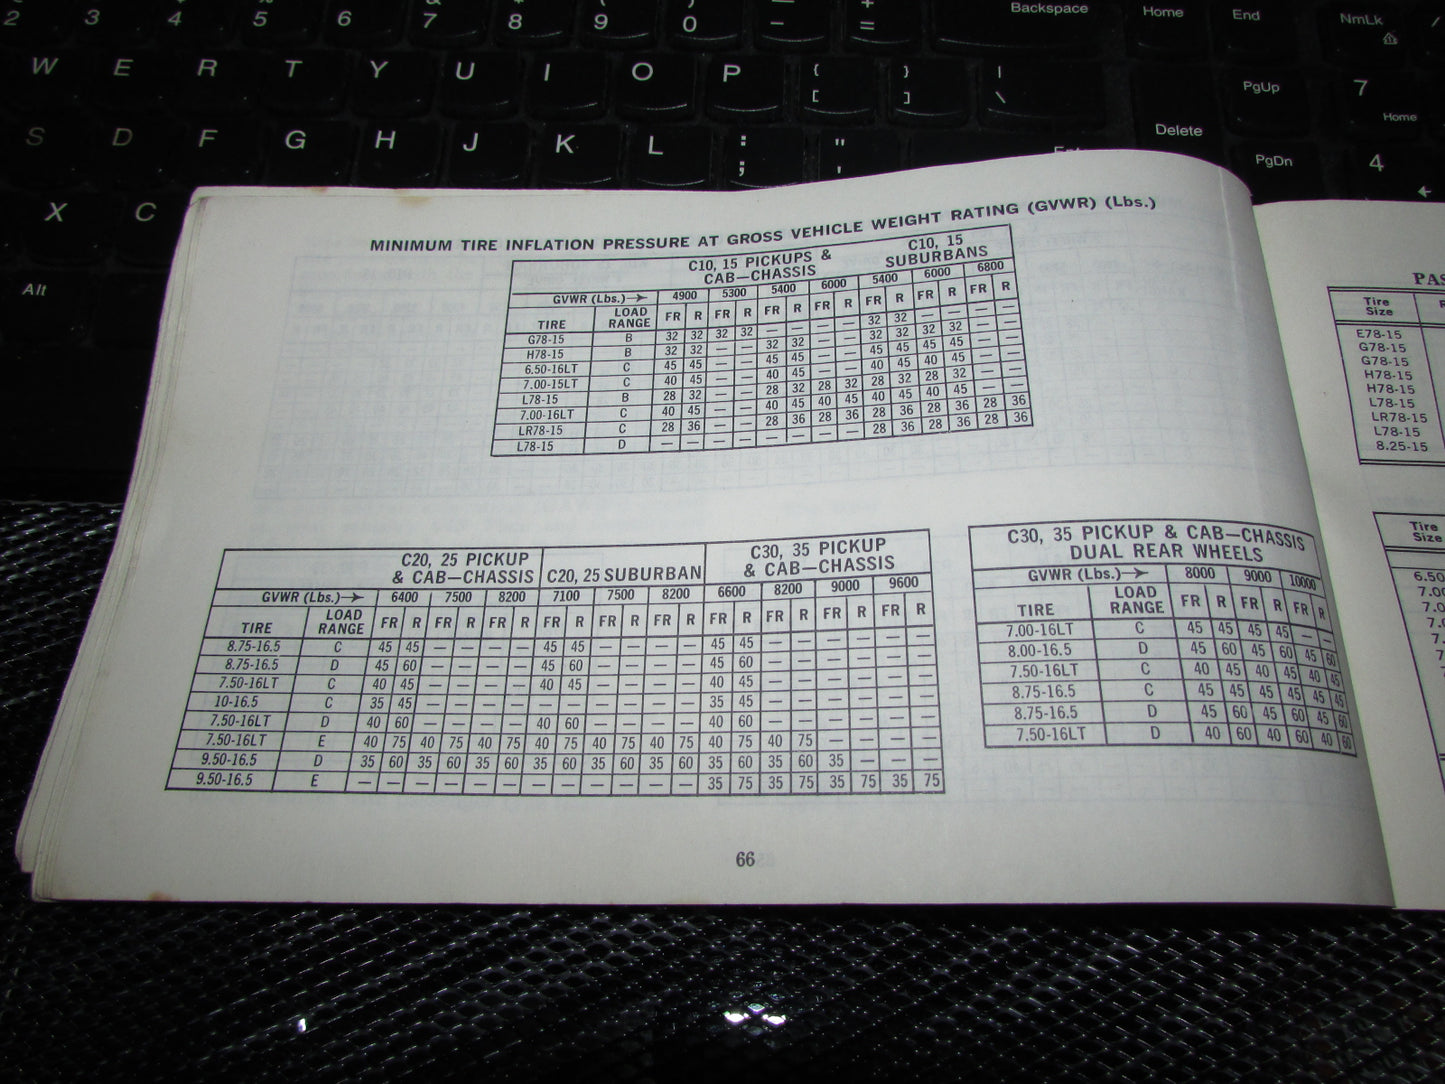 2 3 4 5 6 7 8 9 0 - = Backspace Home End NmLk /
% + 
W E R T Y U I O P { [ } ] | \ PgUp 7 Home
S D F G H J K L : ; " ' Delete PgDn 4
X C
Alt
MINIMUM TIRE INFLATION PRESSURE AT GROSS VEHICLE WEIGHT RATING (GVWR) (Lbs.)
C10, 15 PICKUPS & CAB—CHASSIS C10, 15 SUBURBANS
GVWR (Lbs.)→ 4900 5300 5400 6000 5400 6000 6800
TIRE LOAD RANGE FR R FR R FR R FR R FR R FR R FR R
G78-15 B 32 32 32 32 — — — — 32 32 — — — —
H78-15 B 32 32 — — 32 32 — — 32 32 32 32 — —
6.50-16LT C 45 45 — — 45 45 — — 45 45 45 45 — —
7.00-15LT C 40 45 — — 40 45 — — 40 45 40 45 — —
L78-15 B 28 32 — — 28 32 28 32 28 32 28 32 — —
7.00-16LT C 40 45 — — 40 45 40 45 40 45 40 45 — —
LR78-15 C 28 36 — — 28 36 28 36 28 36 28 36 28 36
L78-15 D — — — — — — — — 28 36 28 36 28 36
C20, 25 PICKUP & CAB—CHASSIS C20, 25 SUBURBAN C30, 35 PICKUP & CAB—CHASSIS
GVWR (Lbs.)→ 6400 7500 8200 7100 7500 8200 6600 8200 9000 9600
TIRE LOAD RANGE FR R FR R FR R FR R FR R FR R FR R FR R FR R FR R
8.75-16.5 C 45 45 — — — — 45 45 — — — — 45 45 — — — — — —
8.75-16.5 D 45 60 — — — — 45 60 — — — — 45 60 — — — — — —
7.50-16LT C 40 45 — — — — 40 45 — — — — 40 45 — — — — — —
10-16.5 C 35 45 — — — — — — — — — — 35 45 — — — — — —
7.50-16LT D 40 60 — — — — 40 60 — — — — 40 60 — — — — — —
7.50-16LT E 40 75 40 75 40 75 40 75 40 75 40 75 40 75 40 75 — — — —
9.50-16.5 D 35 60 35 60 35 60 35 60 35 60 35 60 35 60 35 60 35 — — —
9.50-16.5 E — — — — — — — — — — — — 35 75 35 75 35 75 35 75
C30, 35 PICKUP & CAB—CHASSIS
DUAL REAR WHEELS
GVWR (Lbs.)→ 8000 9000 10000
TIRE LOAD RANGE FR R FR R FR R
7.00-16LT C 45 45 45 45 — —
8.00-16.5 D 45 60 45 60 45 60
7.50-16LT C 40 45 40 45 40 45
8.75-16.5 C 45 45 45 45 45 45
8.75-16.5 D 45 60 45 60 45 60
7.50-16LT D 40 60 40 60 40 60
66
Tire Size
E78-15
G78-15
G78-15
H78-15
H78-15
L78-15
LR78-15
L78-15
8.25-15
Tire Size